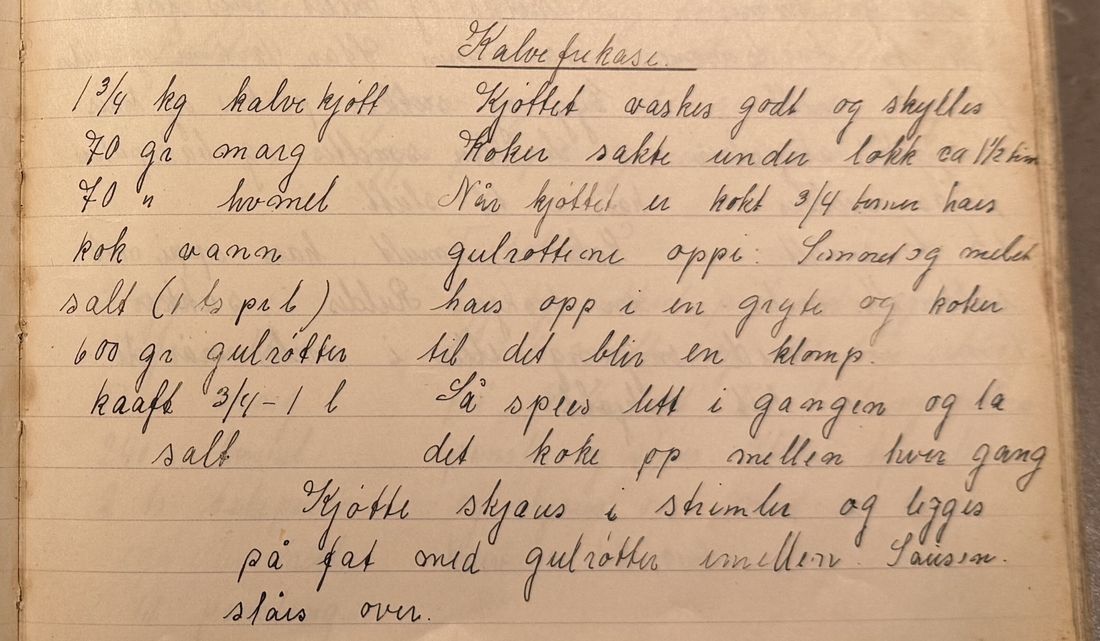 Kalvefrikase.
1 3/4 kg kalvekjøtt Kjøttet vaskes godt og skylles
70 gr marg Koker sakte under lokk ca 1 1/2 tim
70 " hvmel Når kjøttet er kokt 3/4 timer haes
kok vann gulrøttene oppi. Smøret og melet
salt (1 ts pr l) haes opp i en gryte og koker
600 gr gulrøtter til det blir en klomp.
kraft 3/4-1 l Så spees lett i gangen og la
salt det koke op mellen hver gang
Kjøtte skjæres i strimler og legges
på fat med gulrøtter imellen. Sausen.
slåes over.